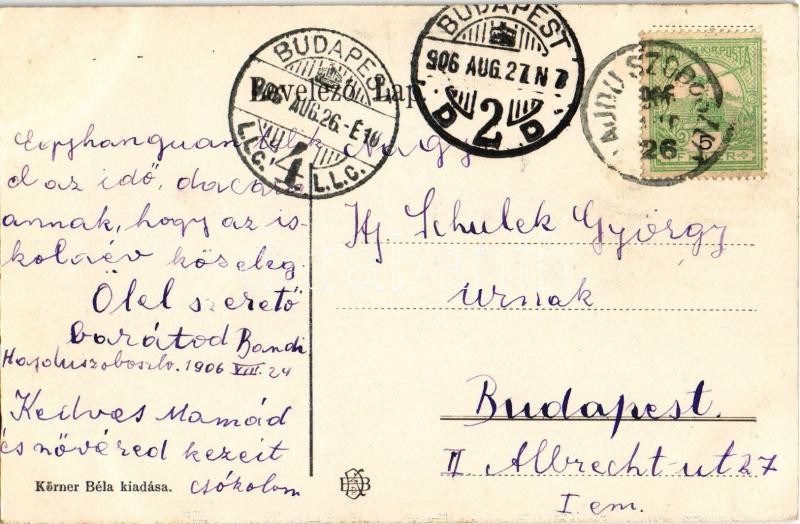 BUDAPEST
906 AUG. 26.-É 10
L.L.C. 4 L.L.C.
BUDAPEST
906 AUG. 27. N 7
D 2 D
SZOBOSZ
26
MAGYAR KIR. POSTA
5
Levelező-Lap
Nagy
el az idő, daczára
annak, hogy az is-
kolaév közeleg.
Ölel szerető
barátod Bandi
Hajduszoboszló. 1906 VIII. 24
Kedves Mamád
és nővéred kezeit
csókolom
Körner Béla kiadása.
Ifj Schulek György
úrnak
Budapest.
II Albrecht-ut 27
I. em.